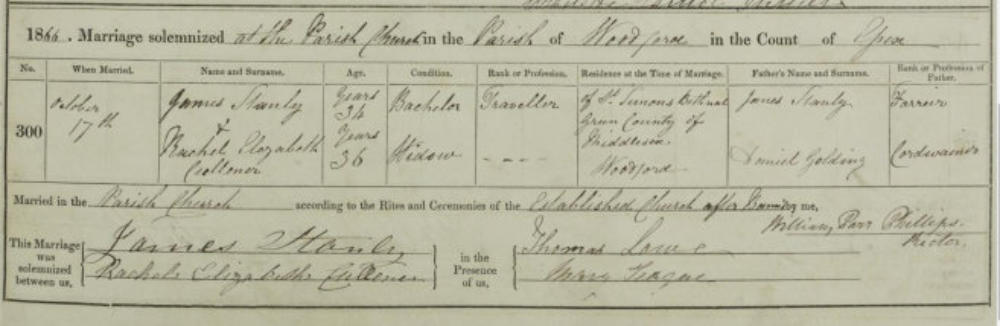 1866. Marriage solemnized at the Parish Church in the Parish of Woodford in the Count of Essex
No. When Married. Name and Surname. Age. Condition. Rank or Profession. Residence at the Time of Marriage. Father's Name and Surname. Rank or Profession of Father.
300 October 17th James Stanly Years 34 Bachelor Traveller of St. Simons Bethnal Green County of Middlesex James Stanly Farrier
& Rachel Elizabeth Cullener Years 36 Widow - - - Woodford Daniel Golding Cordwainer
Married in the Parish Church according to the Rites and Ceremonies of the Established Church after Banns by me,
William Parr Phillips Rector.
This Marriage was solemnized between us, James Stanly Rachel Elizabeth Cullener in the Presence of us, Thomas Lowe Mary Teague